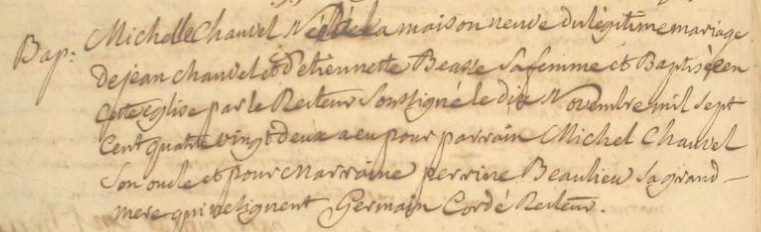 Bap: Michelle Chauvel Née de la maison neuve du légitime mariage
de jean chauvel et d'etiennette Beasse sa femme et Baptisée en
cette église par le Recteur soussigné le dix Novembre mil sept
cent quatre vingt deux a eu pour parrain Michel Chauvel
son oncle et pour Marraine perrine Beaulieu sa grand-
mere qui ne signent Germain Cordé Recteur.